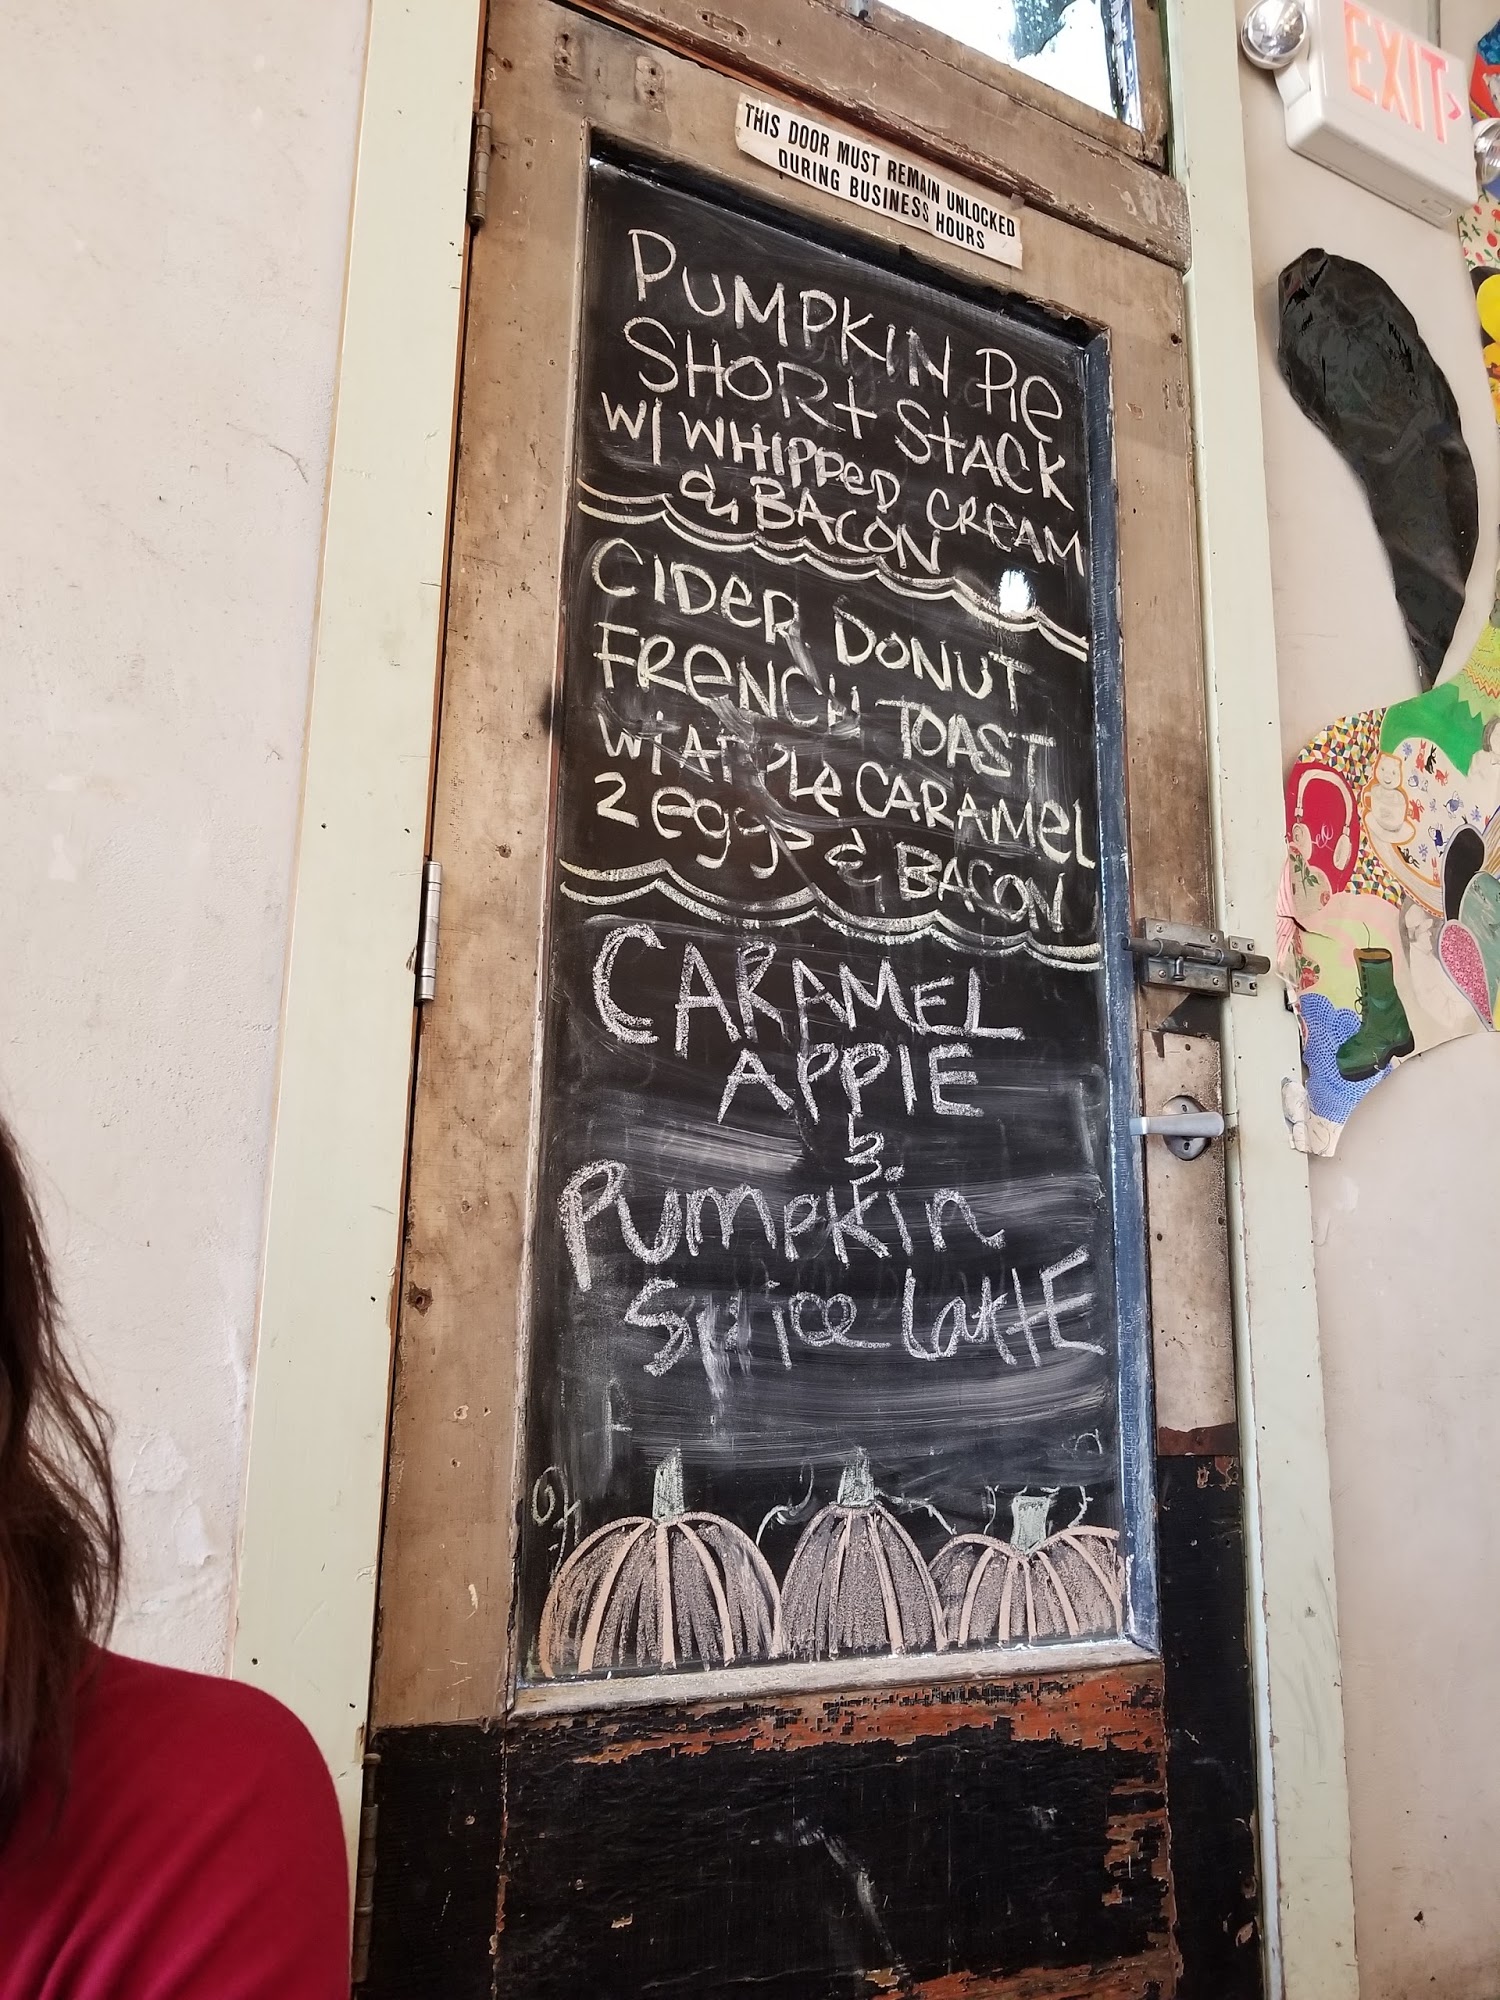 EXIT
THIS DOOR MUST REMAIN UNLOCKED
DURING BUSINESS HOURS
PUMPKIN PIE
SHORT STACK
W/ WHIPPED CREAM
& BACON
CIDER DONUT
FRENCH TOAST
W/ APPLE CARAMEL
2 eggs & BACON
CARAMEL
APPlE
&
Pumpkin
Spice LattE